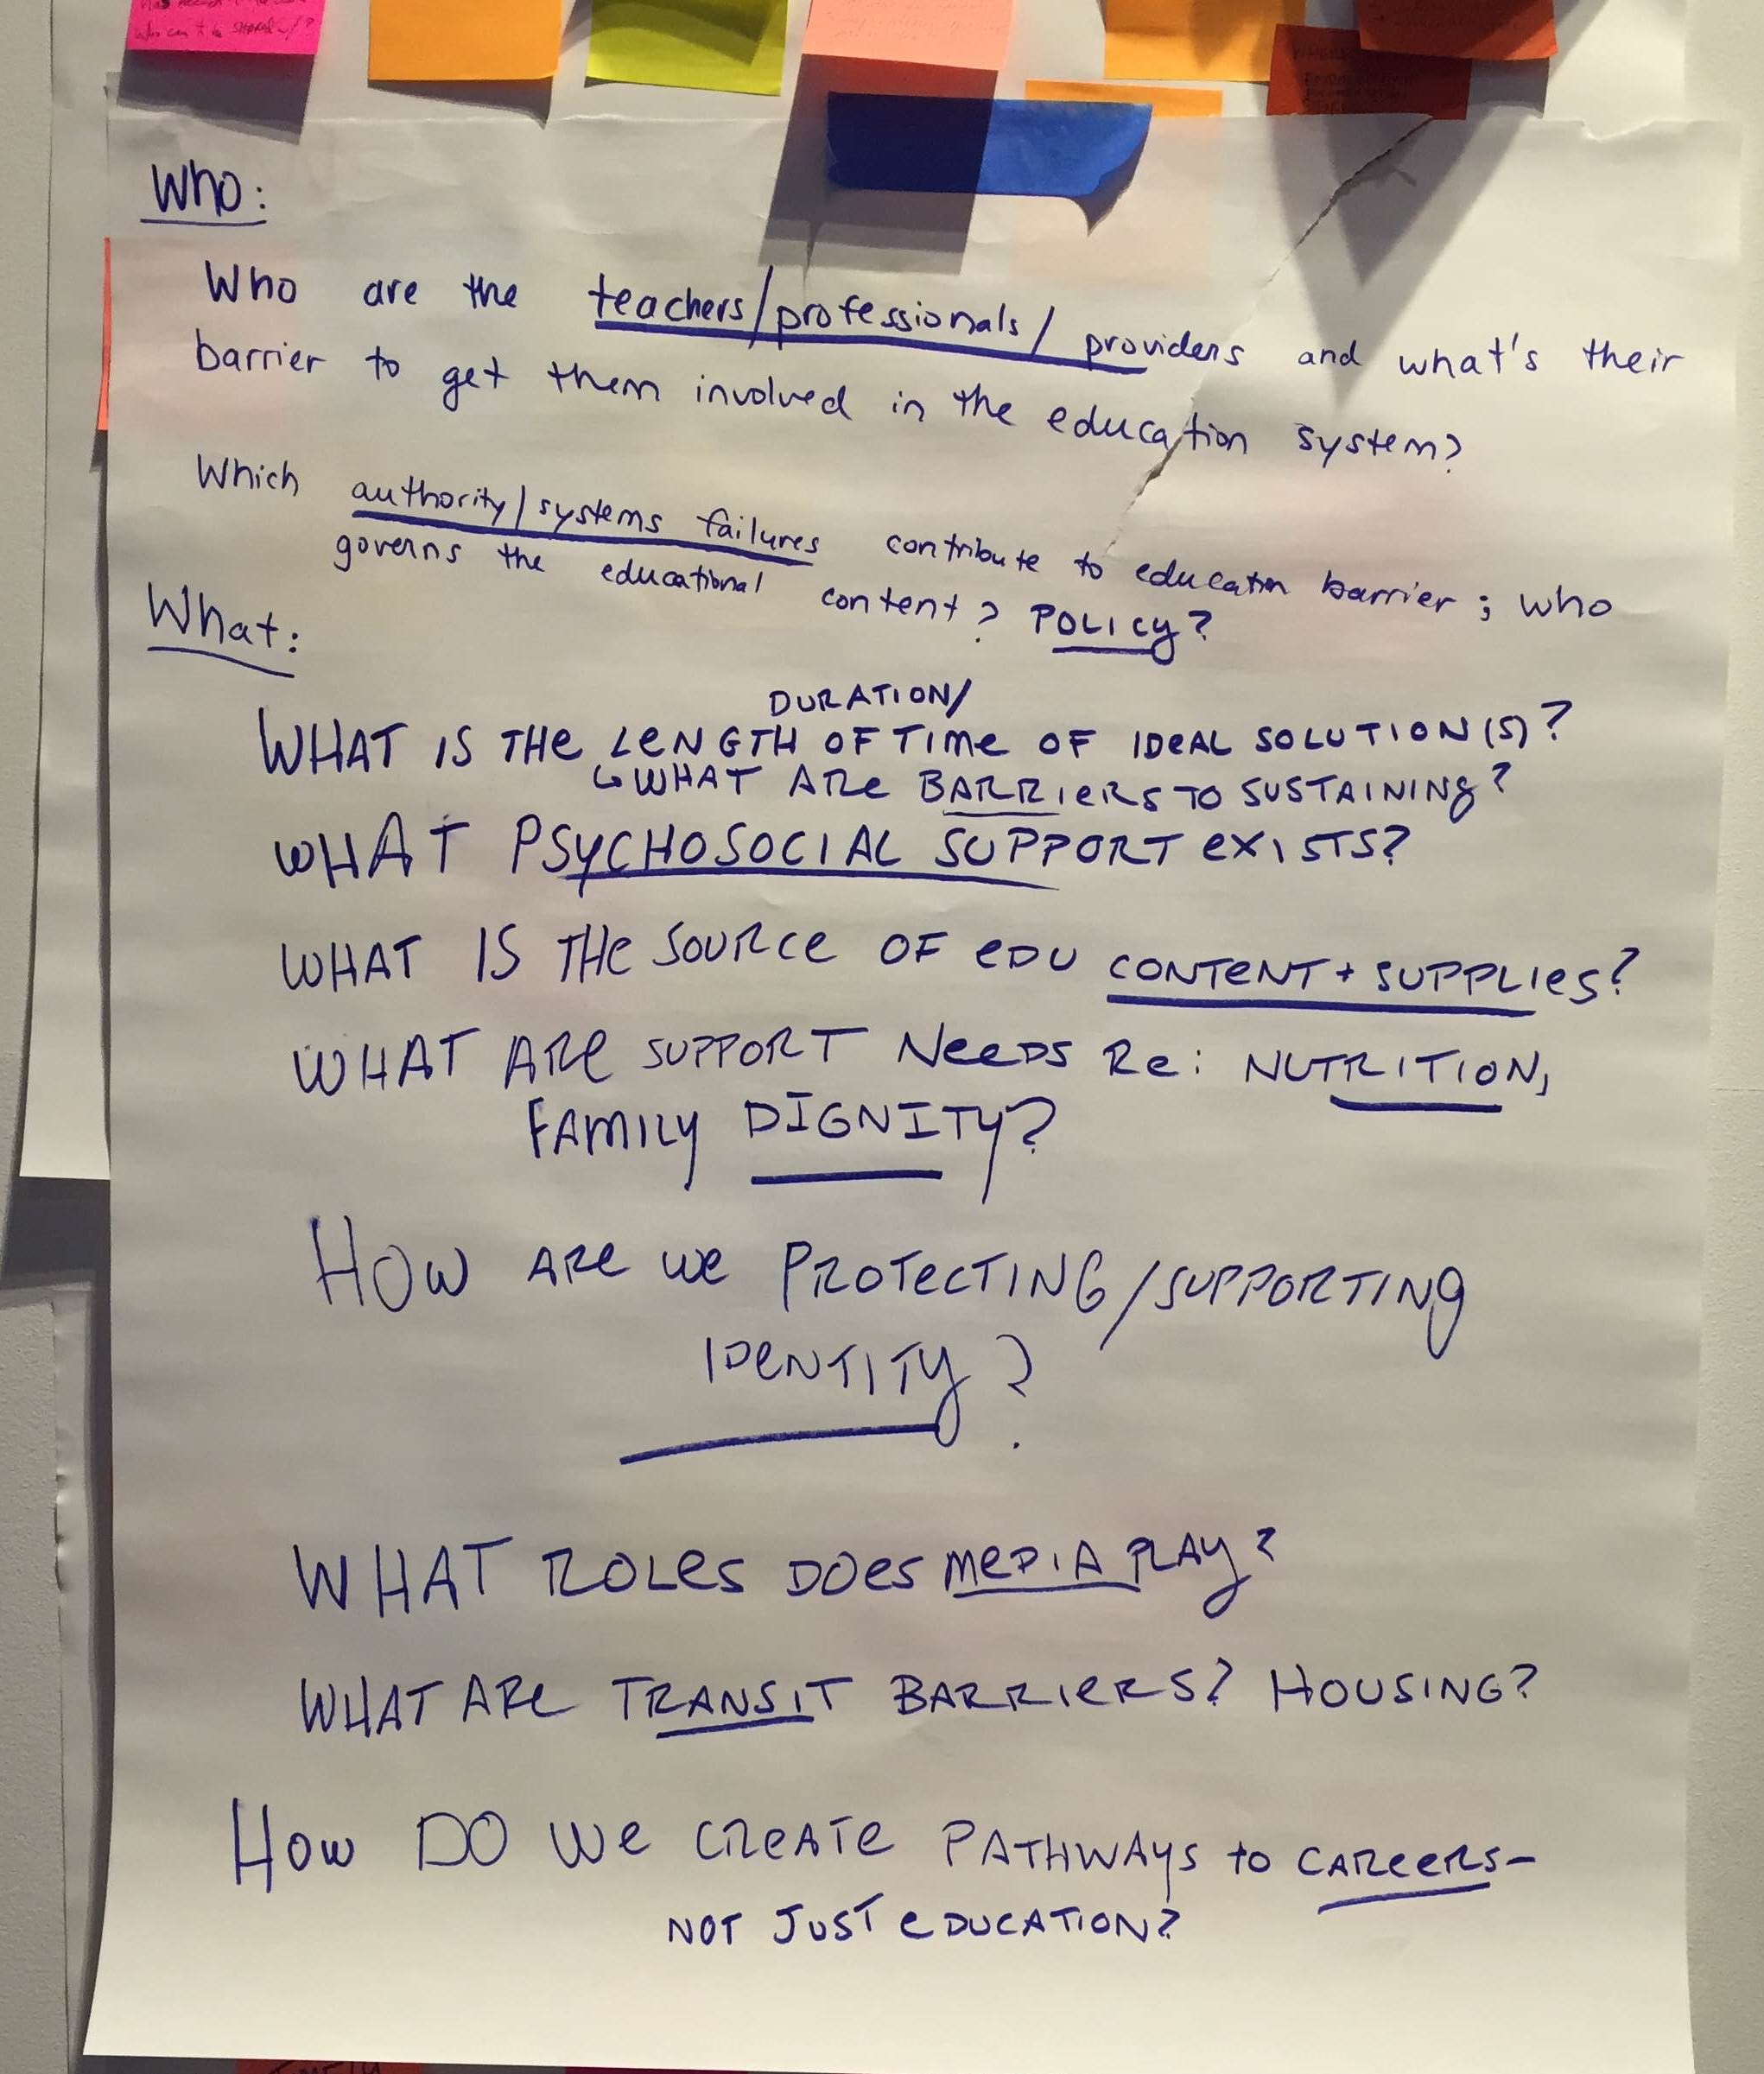 who can the
Who:
Who are the teachers/professionals/ providers and what's their
barrier to get them involved in the education system?
Which authority/systems failures contribute to education barrier; who
governs the educational content? POLICY?
What:
DURATION/
WHAT IS THE LENGTH OF TIME OF IDEAL SOLUTION(S)?
↳ WHAT ARE BARRIERS TO SUSTAINING?
WHAT PSYCHOSOCIAL SUPPORT EXISTS?
WHAT IS THE SOURCE OF EDU CONTENT + SUPPLIES?
WHAT ARE SUPPORT NEEDS RE: NUTRITION,
FAMILY DIGNITY?
HOW ARE WE PROTECTING/SUPPORTING
IDENTITY?
WHAT ROLES DOES MEDIA PLAY?
WHAT ARE TRANSIT BARRIERS? HOUSING?
HOW DO WE CREATE PATHWAYS to CAREERS-
NOT JUST EDUCATION?